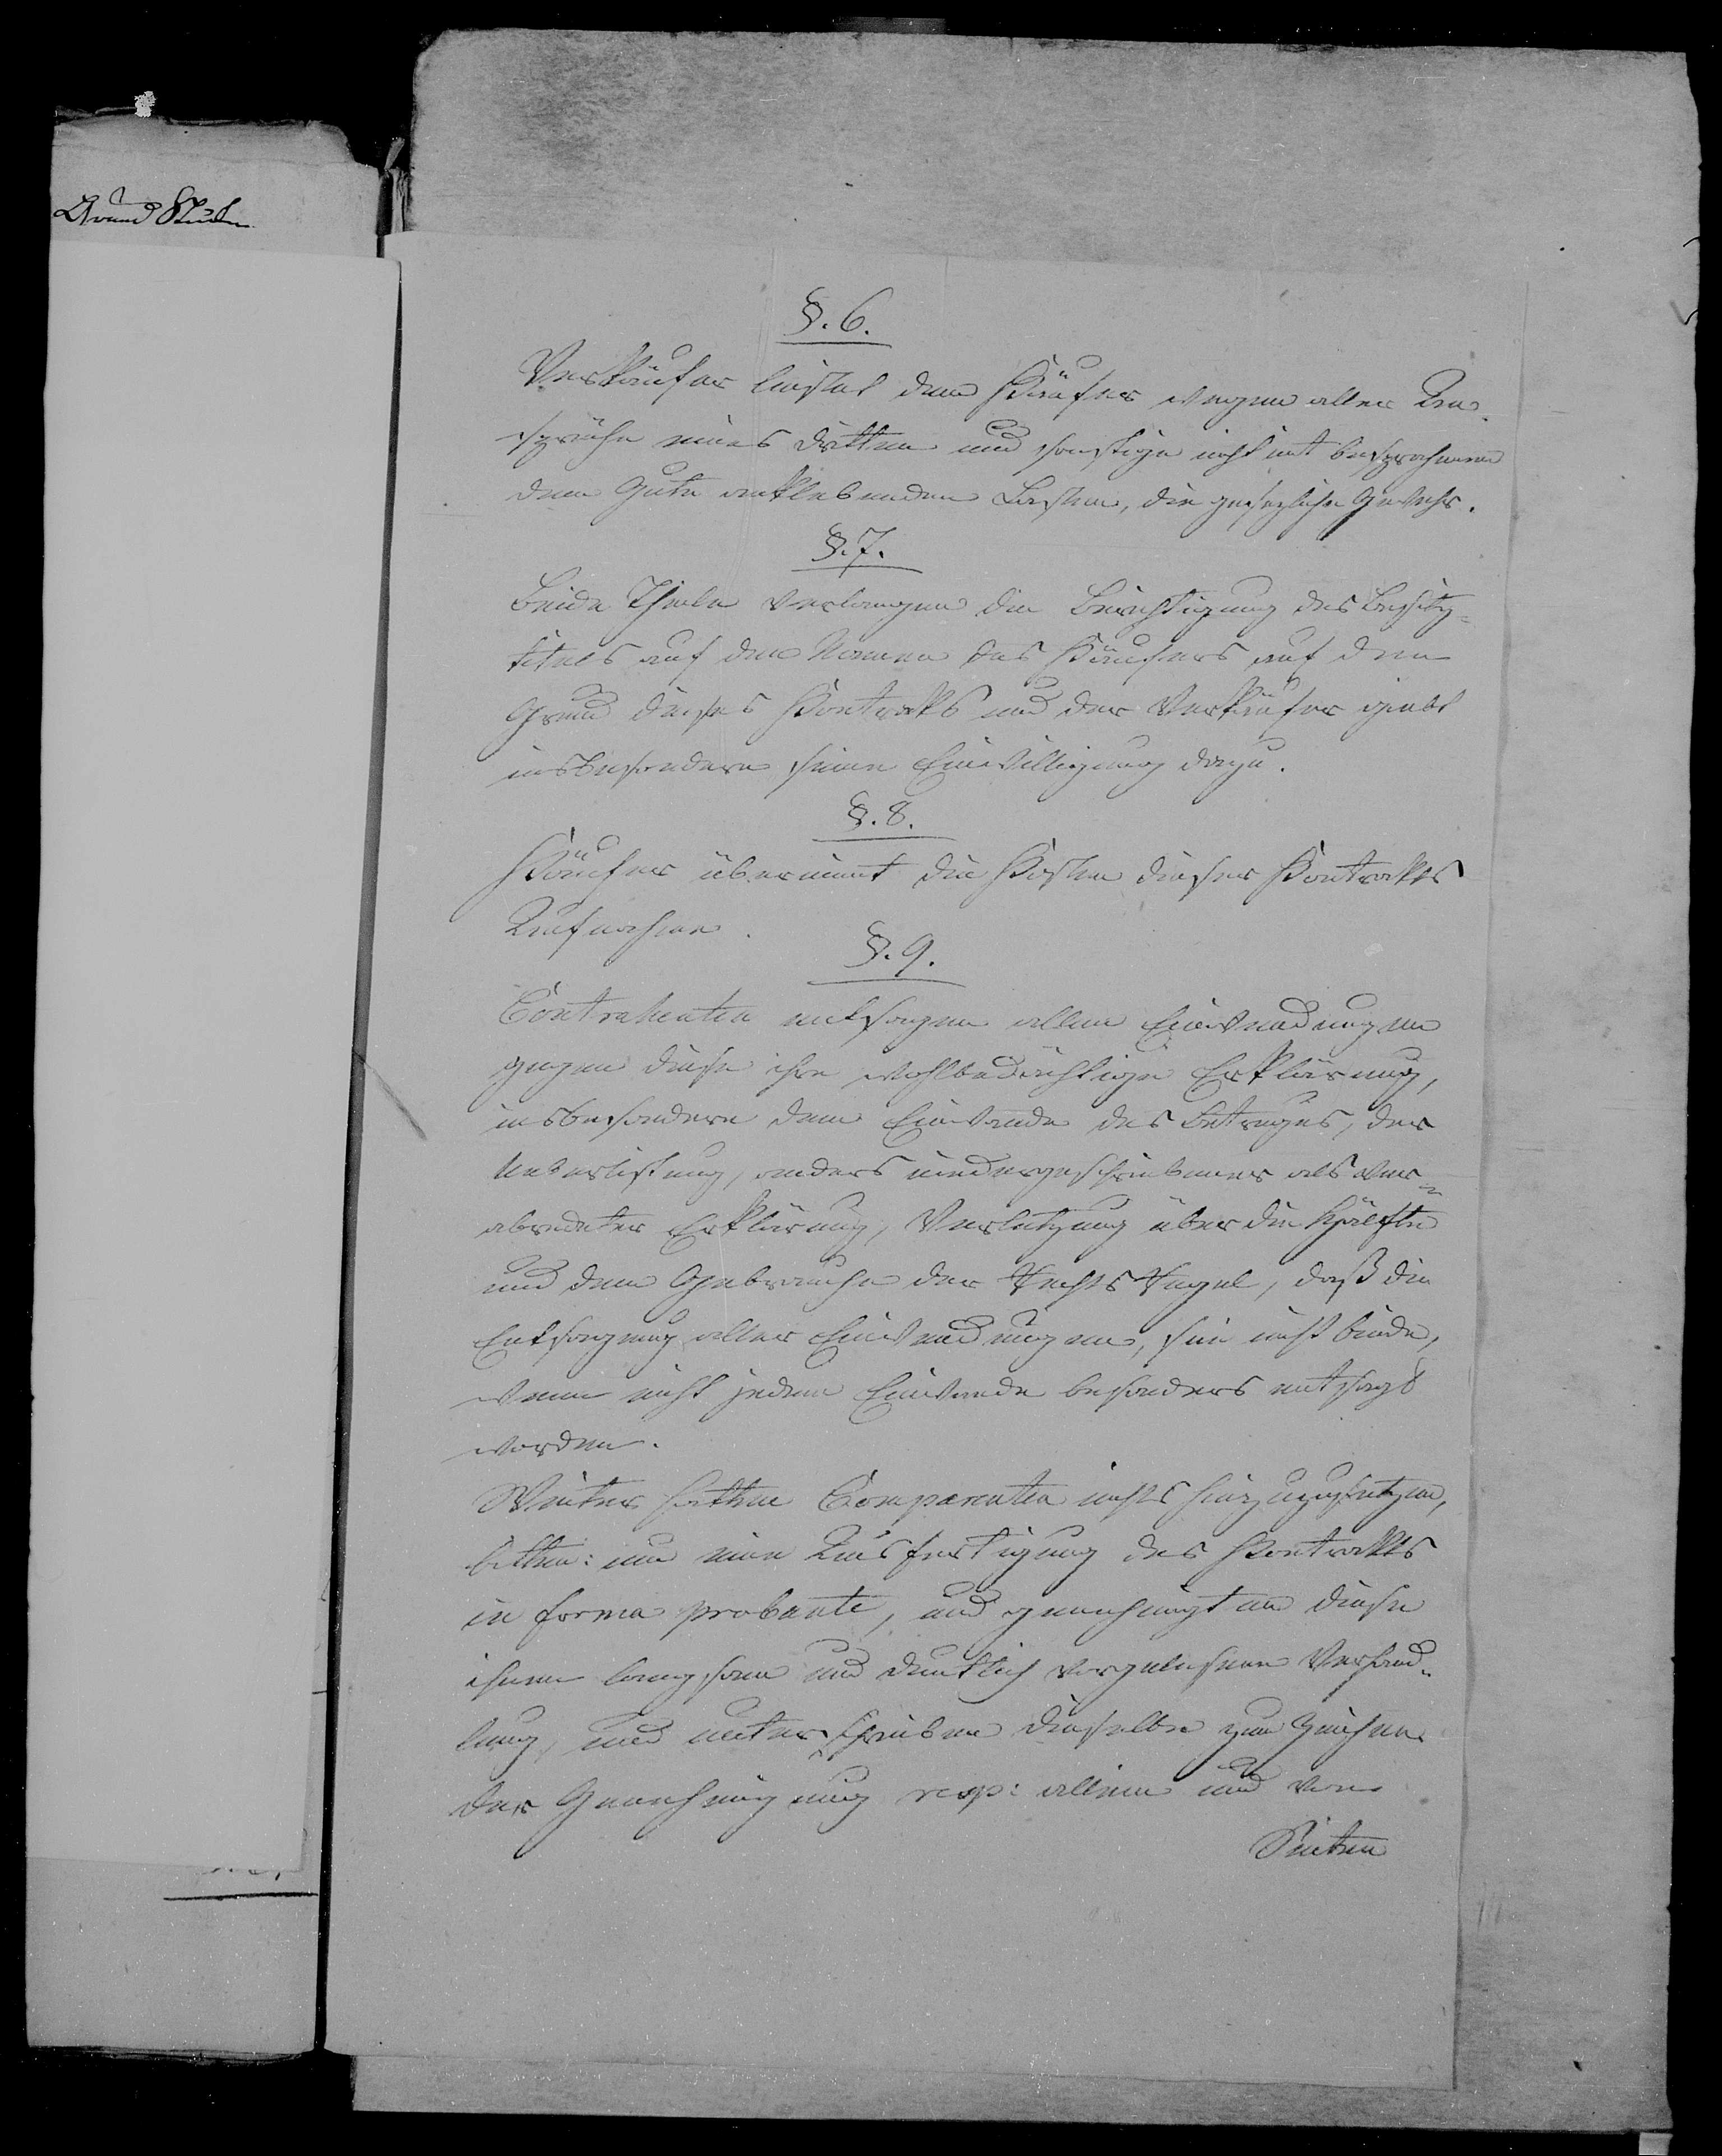 Grund Stücke
§. 6.
Verkäufer leistet dem Käufer wegen aller An-
sprüche eines dritten und sonstige nicht mit besprochenen
dem Gute anklebenden Lasten, die gesezliche Gewehr.
§. 7.
Beide Theile verlangen die Berichtigung des Besitz-
titels auf den Namen des Käufers auf den
Grund dieses Kontrakts und der Verkäufer giebt
insbesondere seine Einwilligung dazu.
§. 8.
Käufer übernimt die Kosten dieser Kontrakts
Aufnahme.
§. 9.
Contrahenten entsagen allen Einwendungen
gegen diese ihre wohlbedächtige Erklärung,
insbesondere dem Einwande des Betruges, der
Ueberlistung, anders niedergeschriebener als ver-
abredeter Erklärung, Verletzung über die Hälfte
und dem Gebrauche der Rechts Regel, daß die
Entsagung aller Einwendungen, sie nicht binde,
wenn nicht jedem Einwande besonders entsagt
worden.
Weiter hatten Comparenten nichts hinzuzusetzen,
bitten: um eine Ausfertigung des Kontrakts
in forma probante, und genehmigten diese
ihnen langsam und deutlich vorgelesene Verhand-
lung, und unterschrieben dieselbe zum Zeichen
der Genehmigung resp: allein und von
Seiten